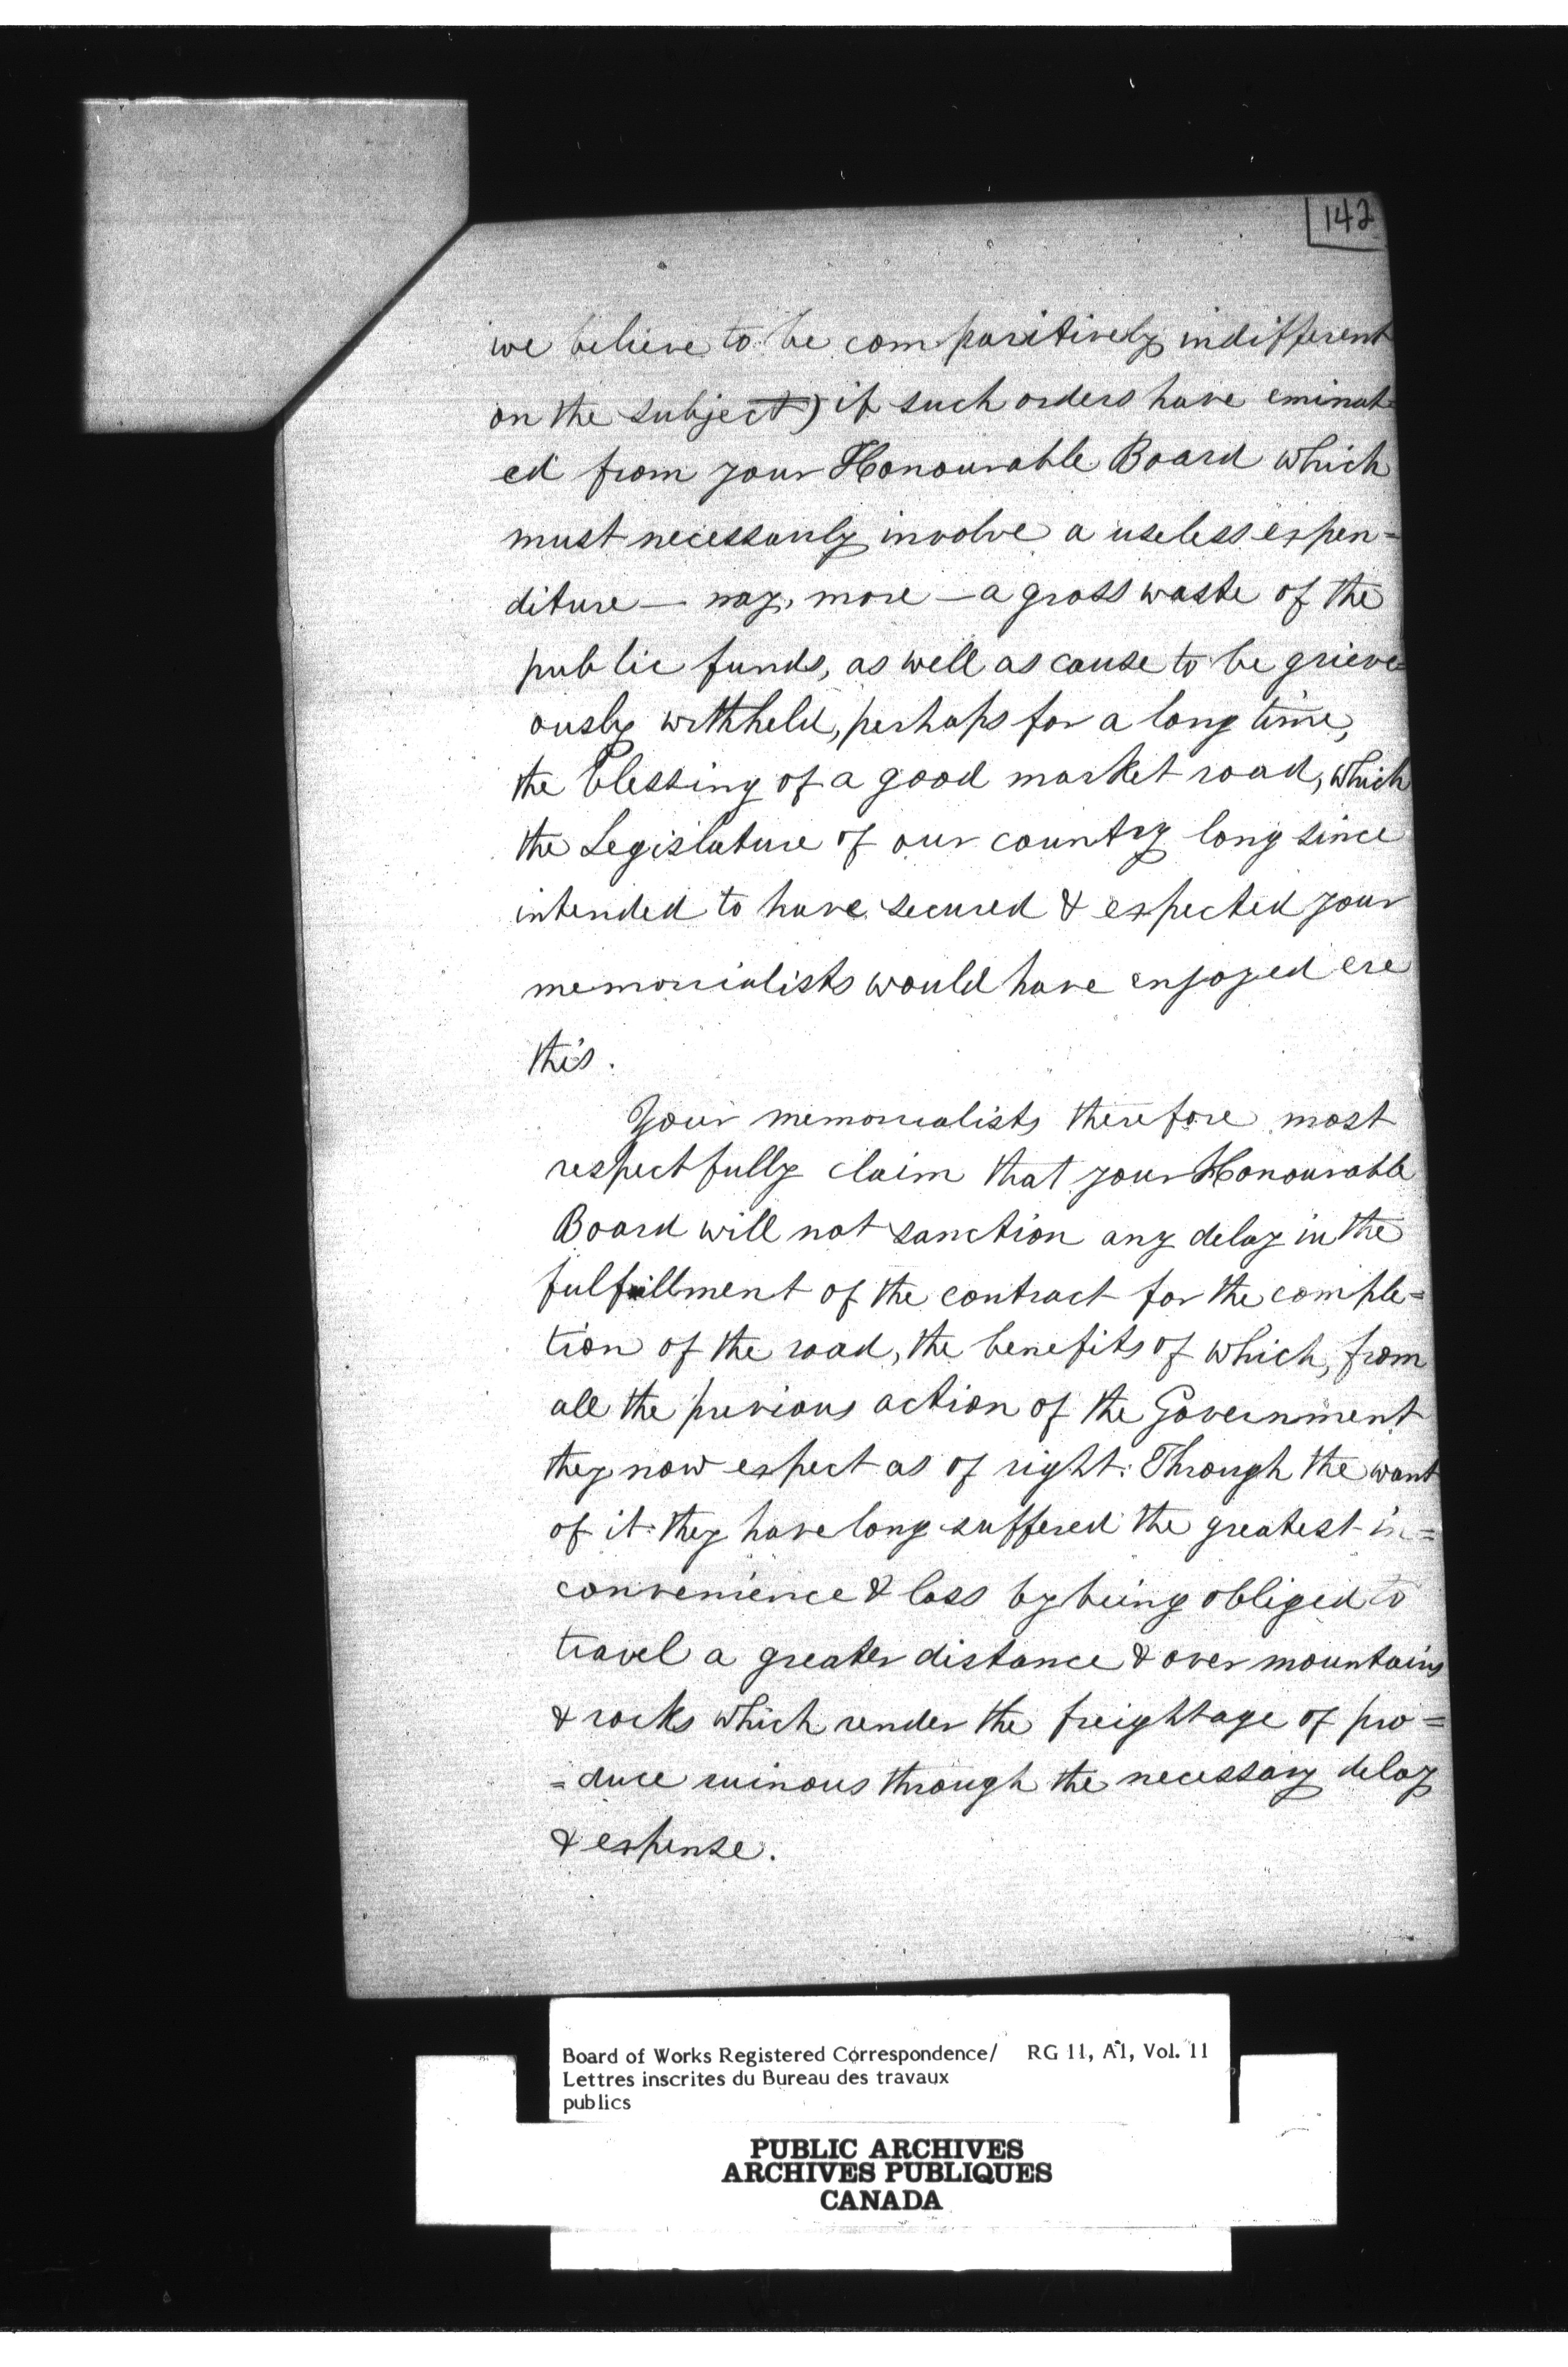 142
we believe to be comparitively indifferent
on the subject) if such orders have eminat
ed from your Honourable Board which
must necessarily involve a useless expen=
diture — nay, more — a gross waste of the
public funds, as well as cause to be grieve=
ously withheld, perhaps for a long time,
the blessing of a good market road, which
the Legislature of our country long since
intended to have secured & expected your
memorialists would have enjoyed ere
this.
Your memorialists therefore most
respectfully claim that your Honourable
Board will not sanction any delay in the
fulfillment of the contract for the comple=
tion of the road, the benefits of which, from
all the previous action of the Government
they now expect as of right. Through the want
of it they have long suffered the greatest in=
convenience & loss by being obliged to
travel a greater distance & over mountains
& rocks which render the freightage of pro=
=duce ruinous through the necessary delay
& expense.
Board of Works Registered Correspondence/ RG 11, A1, Vol. 11
Lettres inscrites du Bureau des travaux
publics
PUBLIC ARCHIVES
ARCHIVES PUBLIQUES
CANADA